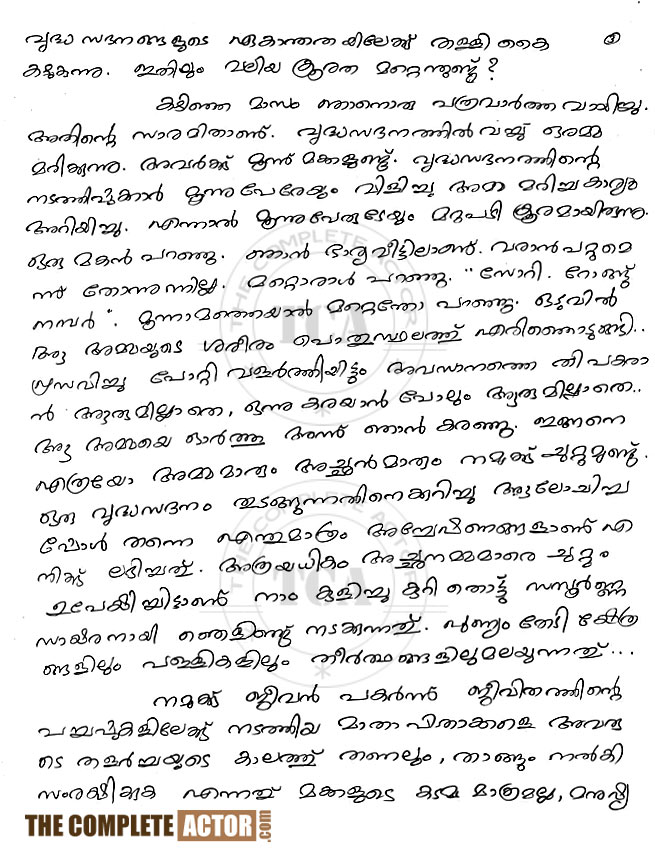 വൃദ്ധ സദനങ്ങളുടെ ഏകാന്തതയിലേക്ക് തള്ളി കൈ ③
കഴുകുന്നു. ഇതിലും വലിയ ക്രൂരത മറ്റെന്തുണ്ട്?
കഴിഞ്ഞ മാസം ഞാനൊരു പത്രവാർത്ത വായിച്ചു.
അതിന്റെ സാരമിതാണ്. വൃദ്ധസദനത്തിൽ വച്ച് ഒരമ്മ
മരിക്കുന്നു. അവർക്ക് മൂന്ന് മക്കളുണ്ട്. വൃദ്ധസദനത്തിന്റെ
നടത്തിപ്പുകാർ മൂന്നുപേരേയും വിളിച്ചു അമ്മ മരിച്ച കാര്യം
അറിയിച്ചു. എന്നാൽ മൂന്നുപേരുടേയും മറുപടി ക്രൂരമായിരുന്നു.
ഒരു മകൻ പറഞ്ഞു. ഞാൻ ഭാര്യവീട്ടിലാണ്. വരാൻ പറ്റുമെ
ന്ന് തോന്നുന്നില്ല. മറ്റൊരാൾ പറഞ്ഞു. "സോറി. റോങ്ങ്
നമ്പർ". മൂന്നാമത്തെയാൾ മറ്റെന്തോ പറഞ്ഞു. ഒടുവിൽ
ആ അമ്മയുടെ ശരീരം പൊതുസ്ഥലത്ത് എരിഞ്ഞൊടുങ്ങി..
പ്രസവിച്ചു പോറ്റി വളർത്തിയിട്ടും അവസാനത്തെ തീ പകരാ
ൻ ആരുമില്ലാതെ, ഒന്നു കരയാൻ പോലും ആരുമില്ലാതെ..
ആ അമ്മയെ ഓർത്തു അന്ന് ഞാൻ കരഞ്ഞു. ഇങ്ങനെ
എത്രയോ അമ്മമാരും അച്ഛൻമാരും നമുക്ക് ചുറ്റുമുണ്ട്.
ഒരു വൃദ്ധസദനം തുടങ്ങുന്നതിനെക്കുറിച്ചു ആലോചിച്ച
പ്പോൾ തന്നെ എന്തുമാത്രം അന്വേഷണങ്ങളാണ് എ
നിക്ക് ലഭിച്ചത്. അത്രയധികം അച്ഛനമ്മമാരെ ചുറ്റും
ഉപേക്ഷിച്ചിട്ടാണ് നാം കുളിച്ചു കുറി തൊട്ട് സമ്പൂർണ്ണ
സാക്ഷരനായി ഞെളിഞ്ഞ് നടക്കുന്നത്. പുണ്യം തേടി ക്ഷേത്ര
ങ്ങളിലും പള്ളികളിലും തീർത്ഥങ്ങളിലുമലയുന്നത്...
നമുക്ക് ജീവൻ പകർന്ന് ജീവിതത്തിന്റെ
പച്ചപ്പുകളിലേക്ക് നടത്തിയ മാതാപിതാക്കളെ അവരു
ടെ തളർച്ചയുടെ കാലത്ത് തണലും, താങ്ങും നൽകി
സംരക്ഷിക്കുക എന്നത് മക്കളുടെ കടമ മാത്രമല്ല, മനുഷ്യ
THE COMPLETE ACTOR.com
THE COMPLETE ACTOR
TCA
THE COMPLETE ACTOR
TCA